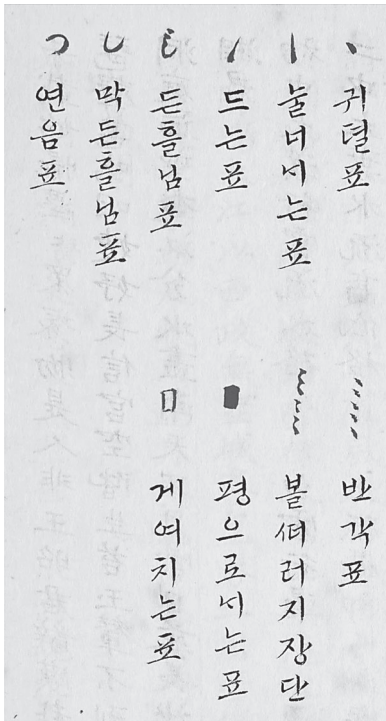 귀뎔표
눌너서는표
드는표
든흘님표
막든흘님표
연음표
반각표
볼뗘러지장단
평으로서는표
게여치는표